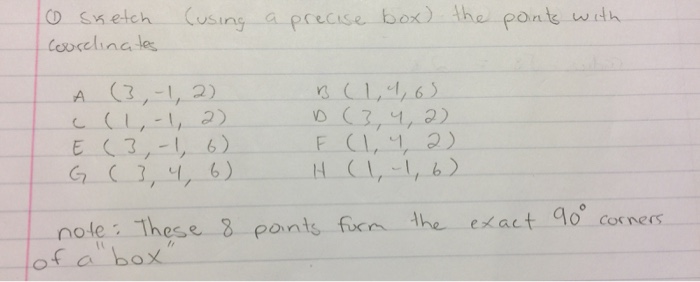 ① Sketch (using a precise box) the points with
coordinates
A (3,-1,2) B (1,4,6)
C (1,-1,2) D (3,4,2)
E (3,-1,6) F (1,4,2)
G (3,4,6) H (1,-1,6)
note: These 8 points form the exact 90° corners
of a "box"